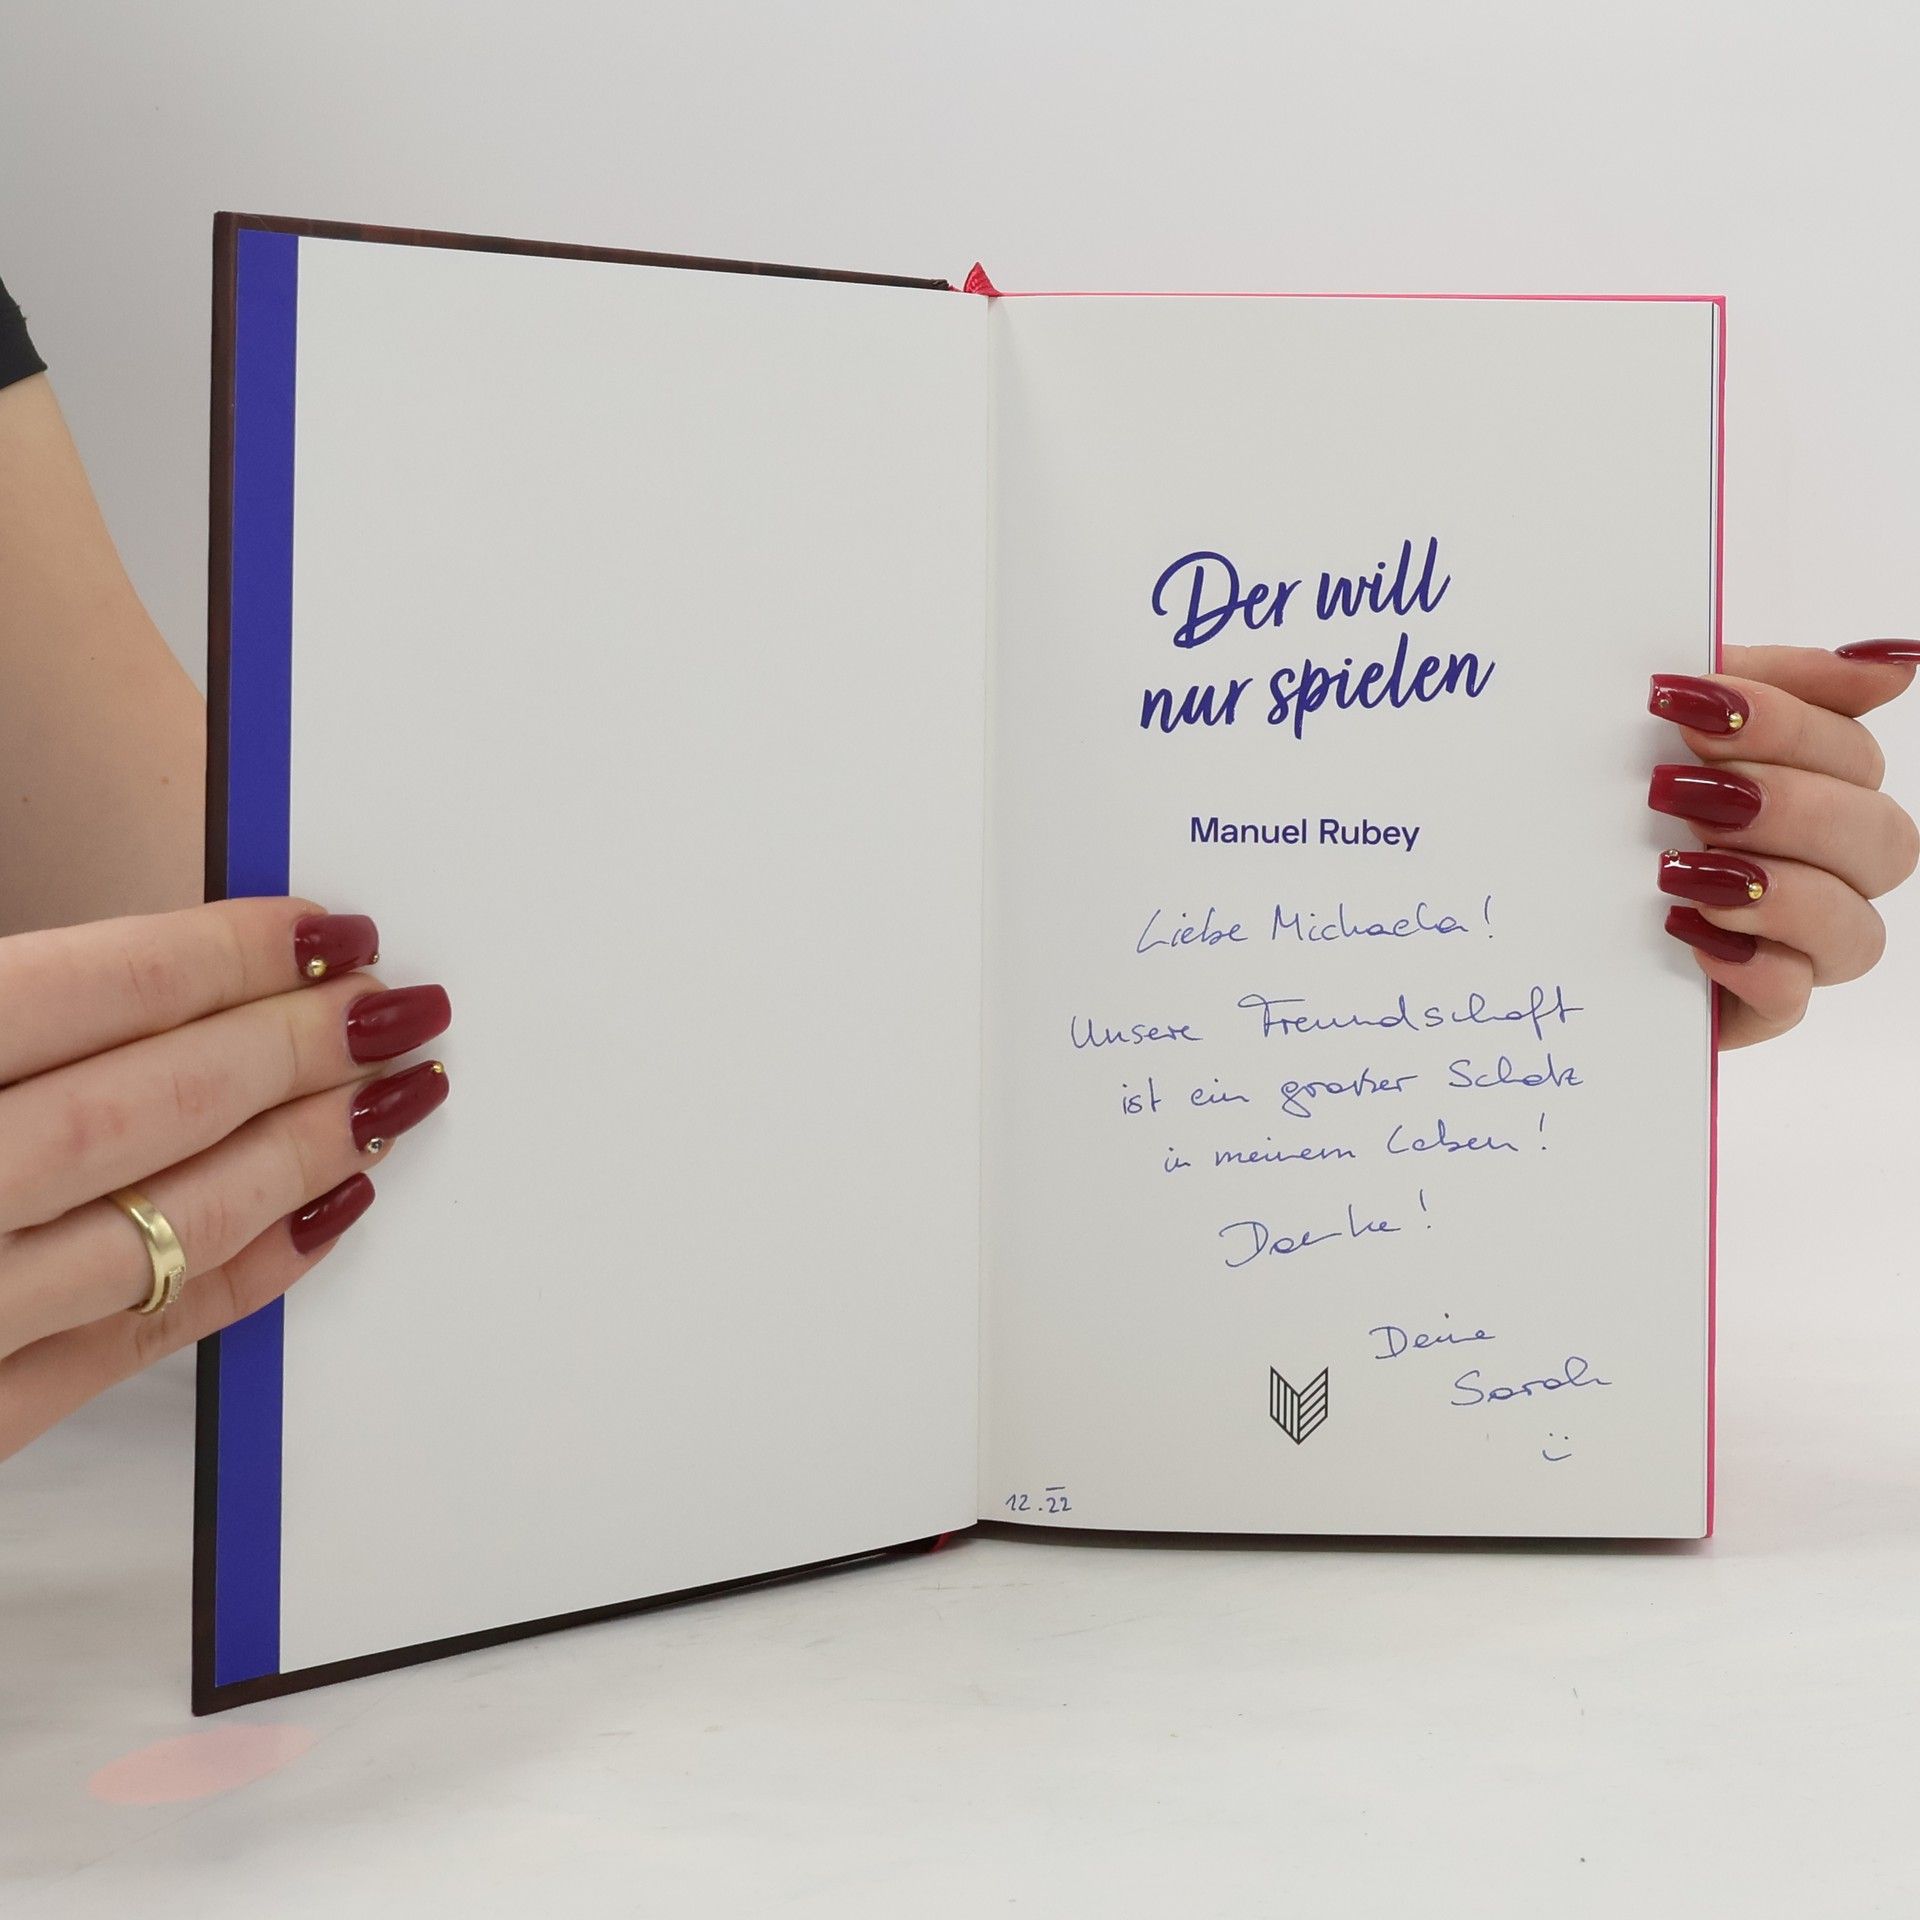 Der will
nur spielen
Manuel Rubey
Liebe Michaela!
Unsere Freundschaft
ist ein großer Schatz
in meinem Leben!
Danke!
Deine
Sarah
12.22